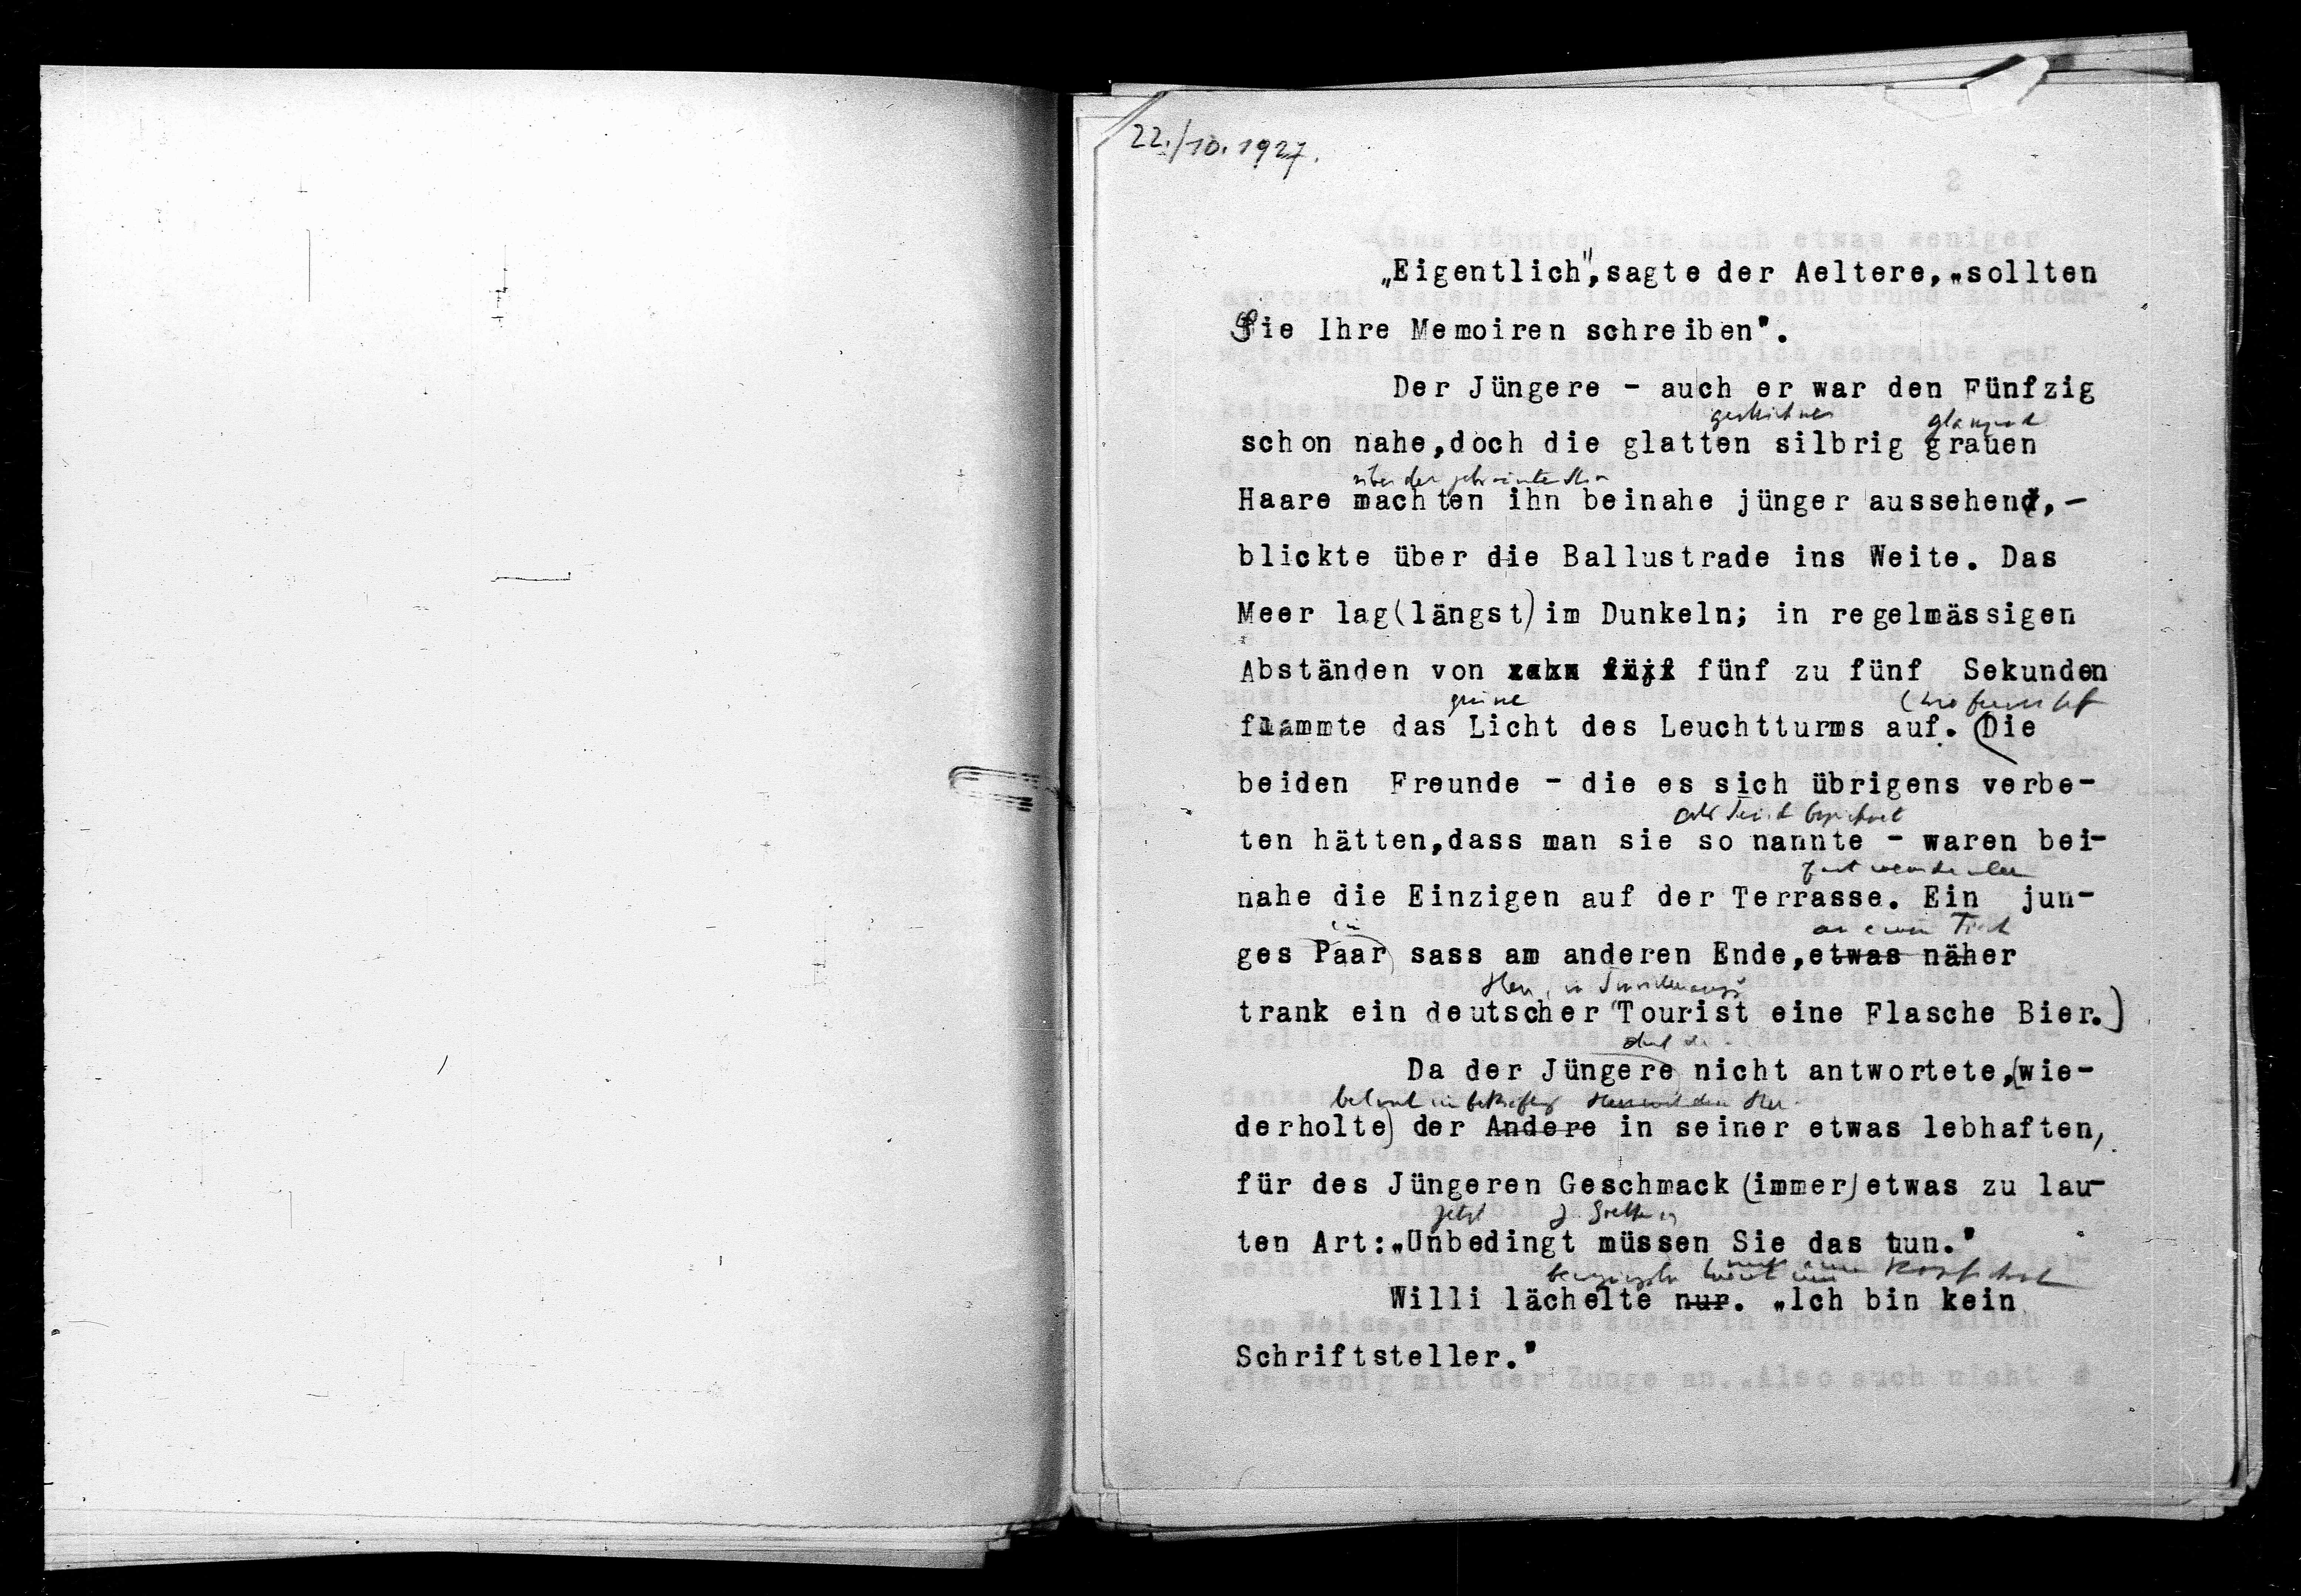 22./10.1927.
„Eigentlich", sagte der Aeltere, „sollten
Sie Ihre Memoiren schreiben".
Der Jüngere - auch er war den Fünfzig
glänzend
schon nahe, doch die glatten silbrig grauen
über der
Haare machten ihn beinahe jünger aussehend, -
blickte über die Ballustrade ins Weite. Das
Meer lag (längst) im Dunkeln; in regelmässigen
Abständen von zehn fünf fünf zu fünf Sekunden
grüne
flammte das Licht des Leuchtturms auf. (Die
beiden Freunde - die es sich übrigens verbe-
ten hätten, dass man sie so nannte - waren bei-
nahe die Einzigen auf der Terrasse. Ein jun-
an einem Tisch
ges Paar) sass am anderen Ende, etwas näher
Herr, in
trank ein deutscher Tourist eine Flasche Bier.)
Da der Jüngere) nicht antwortete, (wie-
derholte) der Andere in seiner etwas lebhaften,
für des Jüngeren Geschmack (immer) etwas zu lau-
jetzt
ten Art: „Unbedingt müssen Sie das tun."
Willi lächelte nur. „Ich bin kein
Schriftsteller."